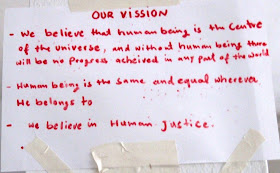 OUR VISSION
- We believe that human being is the Centre
of the universe, and without human being there
will be no Progress acheived in any part of the world
- Human being is the same and equal wherever
He belongs to
- We believe in Human Justice.